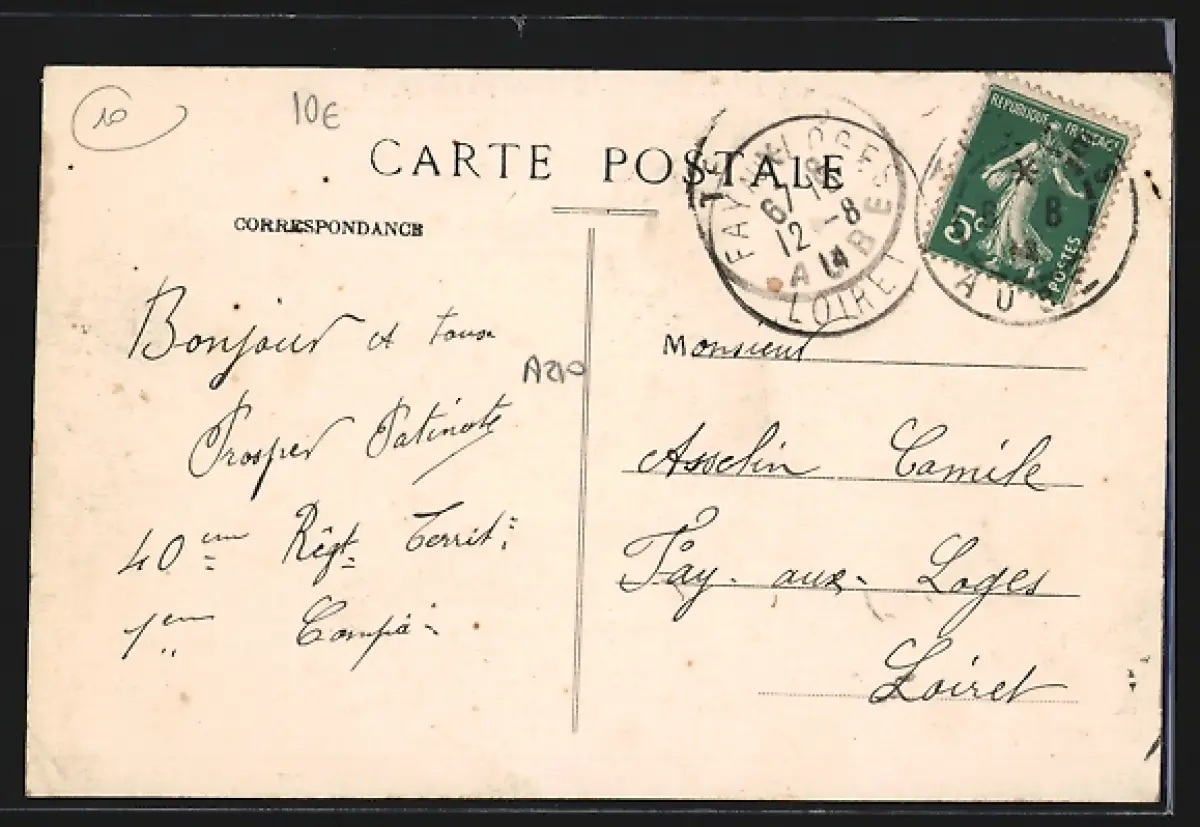 10
10€
CARTE POSTALE
CORRESPONDANCE
Bonjour et tous
Prosper Patinote
40 em Régt Territ:
1 em Compie
A210
FAY-AUX-LOGES
12 -8
14
LOIRET
AUBE
RÉPUBLIQUE FRANÇAISE
5c
POSTES
AUBE
Monsieur
Asselin Camile
Fay-aux-Loges
Loiret